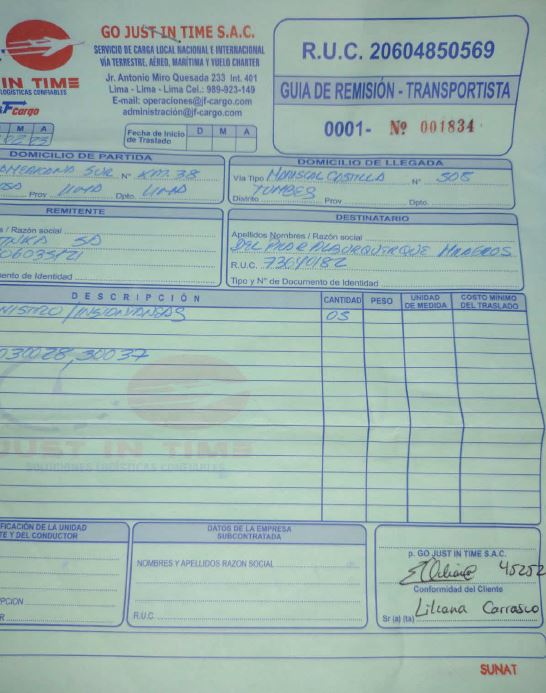 GO JUST IN TIME S.A.C.
SERVICIO DE CARGA LOCAL NACIONAL E INTERNACIONAL
VÍA TERRESTRE, AÉREO, MARÍTIMA Y VUELO CHARTER
Jr. Antonio Miro Quesada 233 Int. 401
Lima - Lima - Lima Cel.: 989-923-149
E-mail: operaciones@jf-cargo.com
administración@jf-cargo.com
IN TIME
LOGÍSTICAS CONFIABLES
Cargo
R.U.C. 20604850569
GUIA DE REMISIÓN - TRANSPORTISTA
0001- Nº 001834
M A
Fecha de Inicio de Traslado D M A
DOMICILIO DE PARTIDA
SUR Nº KM. 38
Prov. LIMA Dpto. LIMA
DOMICILIO DE LLEGADA
Vía Tipo MARISCAL CASTILLA Nº 505
TUMBES
Distrito Prov Dpto.
REMITENTE
/ Razón social
SA
mento de Identidad
DESTINATARIO
Apellidos Nombres / Razón social
DEL PILAR ALBURQUERQUE MILAGROS
R.U.C. 73649182
Tipo y N° de Documento de Identidad
DESCRIPCIÓN CANTIDAD PESO UNIDAD DE MEDIDA COSTO MÍNIMO DEL TRASLADO
03
030028, 30037
JUST IN TIME
SOLUCIONES LOGÍSTICAS CONFIABLES
FICACIÓN DE LA UNIDAD
TE Y DEL CONDUCTOR
PCION
R
DATOS DE LA EMPRESA
SUBCONTRATADA
NOMBRES Y APELLIDOS RAZON SOCIAL
R.U.C.
p. GO JUST IN TIME S.A.C.
45252
Conformidad del Cliente
Liliana Carrasco
Sr (a) (ta)
SUNAT